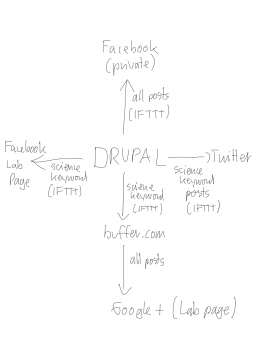 Facebook
(private)
all posts
(IFTTT)
Facebook
Lab
Page
science
keyword
(IFTTT)
DRUPAL
Twitter
science
keyword
posts
(IFTTT)
science
keyword
(IFTTT)
buffer.com
all posts
Google + (Lab page)